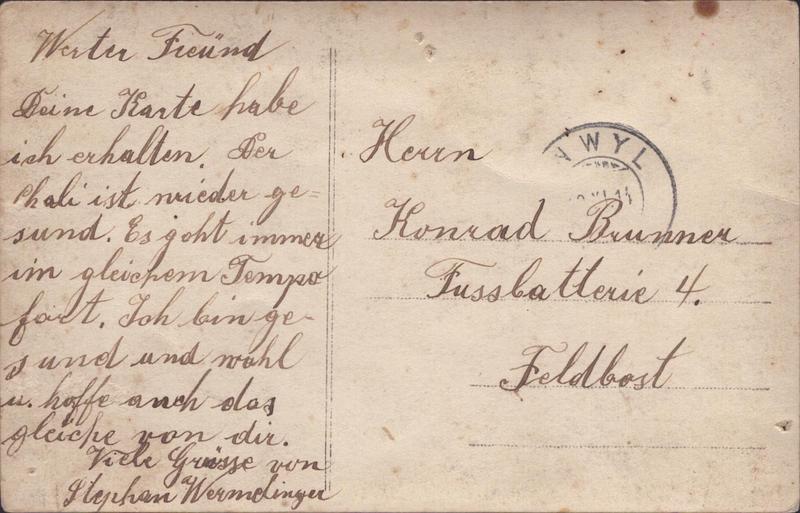 Werter Freünd
Deine Karte habe
ich erhalten. Der
Chali ist wieder ge=
sund. Es geht immer
im gleichem Tempo
fort. Ich bin ge-
sund und wohl
u. hoffe auch das
gleiche von dir.
Viele Grüsse von
Stephan Wermelinger
WYL
Herrn
Konrad Brunner
Fussbatterie 4.
Feldbost